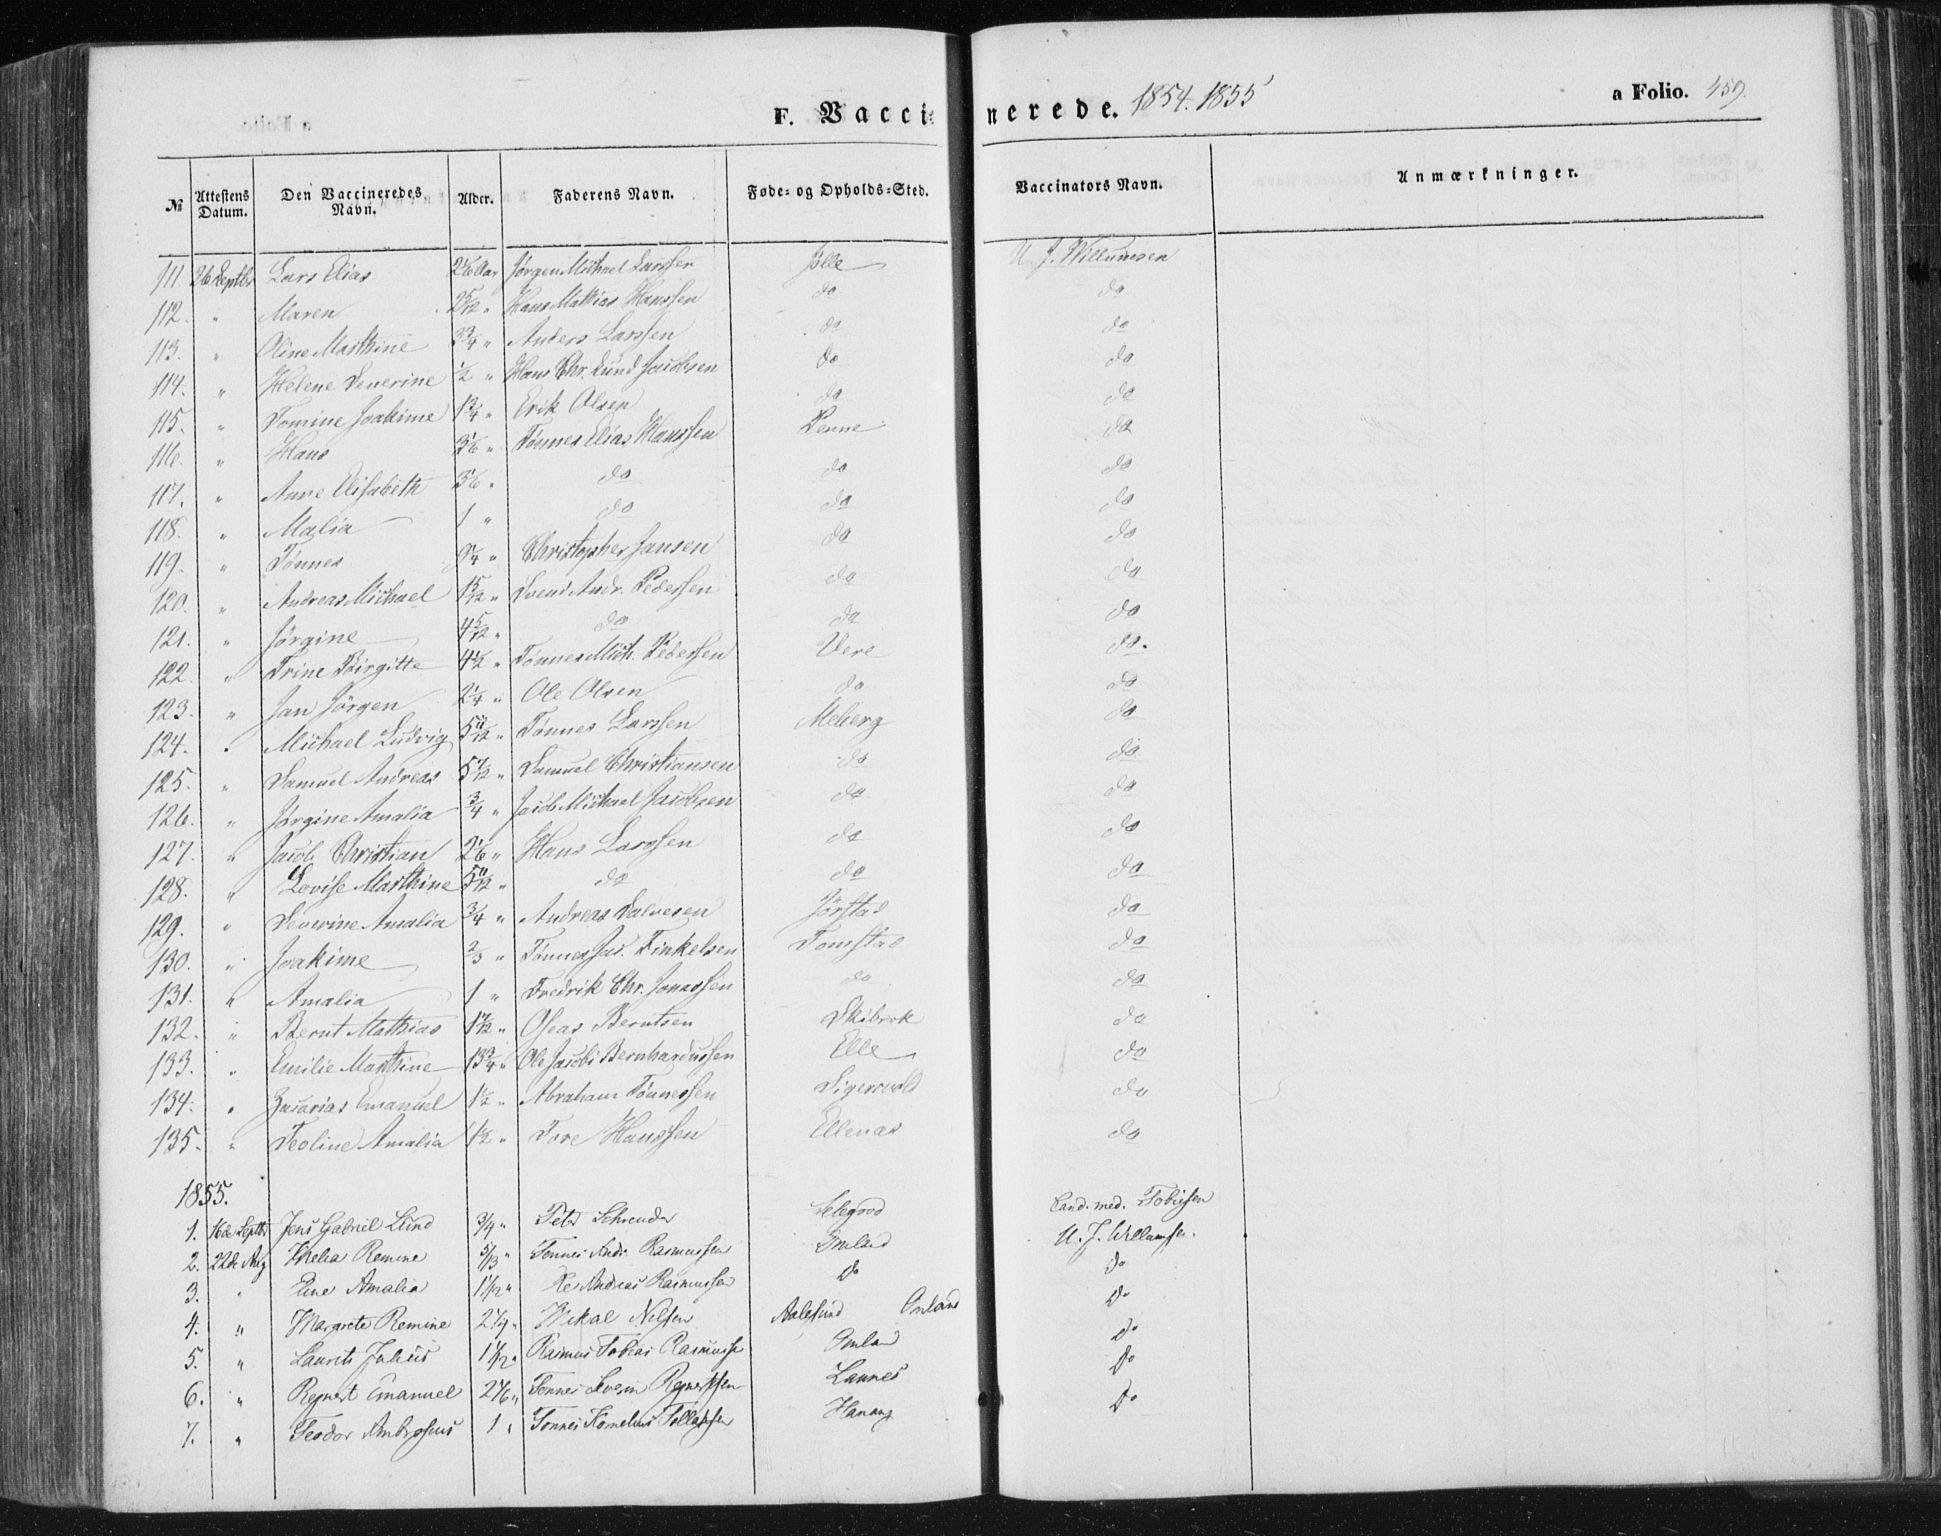 F. Vaccinerede. 1854. 1855 a Folio. 459.
№ Attestens Datum. Den Vaccineredes Navn. Alder. Faderens Navn. Føde- og Opholds-Sted. Vaccinators Navn. Anmærkninger.
111. 26 Septbr Lars Elias 2 1/6 Aar Jörgen Michael Larssen Jölle U. J. Willumsen
112. " Maren 2 5/12 " Hans Mathias Hanssen do do
113. " Oline Marthine 3 3/4 " Anders Larssen do do
114. " Helene Severine 1/2 " Hans Chr. Lund Jacobsen do do
115. " Tomine Joakime 1 3/4 " Erik Olsen do do
116. " Hans 3 1/6 " Tönnes Elias Hanssen Penne do
117. " Anne Elisabeth 5/6 " do do do
118. " Malia 1 " do do do
119. " Tönnes " Christopher Jansen do do
120. " Andreas Michael 1 5/12 " Svend Andr. Pedersen do do
121. " Jörgine 4 5/12 " do do do
122. " Trine Birgitte 4 1/2 " Tönnes Mich. Pedersen Vere do.
123. " Jan Jörgen 2 1/4 " Ole Olsen do do
124. " Michael Ludvig 5 11/12 " Tönnes Larssen Meberg do
125. " Samuel Andreas 5 7/12 " Samuel Christiansen do do
126. " Jörgine Amalia 3/4 " Jacob Michael Jacobsen do do
127. " Jacob Christian 2 1/6 " Hans Larssen do do
128. " Lovise Marthine 5 11/12 " do do do
129. " Severine Amalia 3/4 " Andreas Salvesen Jörstad do
130. " Joakime 2/3 " Tönnes Jac. Tinkelsen Tomstad do
131. " Amalia 1 " Fredrik Chr. Jonassen do do
132. " Bernt Mathias " Oseas Berntsen Skibrok do
133. " Emilie Marthine 13 3/4 " Ole Jacobi Bernhardussen Elle do
134. " Zacarias Emanuel 1 1/2 " Abraham Tönnessen Sigersvold do
135. " Teoline Amalia 1 1/2 " Tore Hanssen Ellenas do
1855.
1. 16de Septbr Jens Gabriel Lund 3/4 " Peter Schreuder Cand. med. Tobiesen
2. 22de Aug Remine " Tønnes Andr. Rasmussen Omland U. J. Willumsen.
3. " Amalia 1 1/12 " Andreas Rasmussen Do Do
4. " Margrete Remine 2 1/4 " Mikal Nilsen Aalesund Omland Do
5. " Laurits Julius 1 1/12 " Rasmus Tobias Rasmussen Omland Do
6. " Regnert Emanuel 2 1/6 " Tønnes Severin Regnertsen Launes Do
7. " Teodor Ambrosius 1 " Tønnes Kornelius Tollaksen Hanang Do